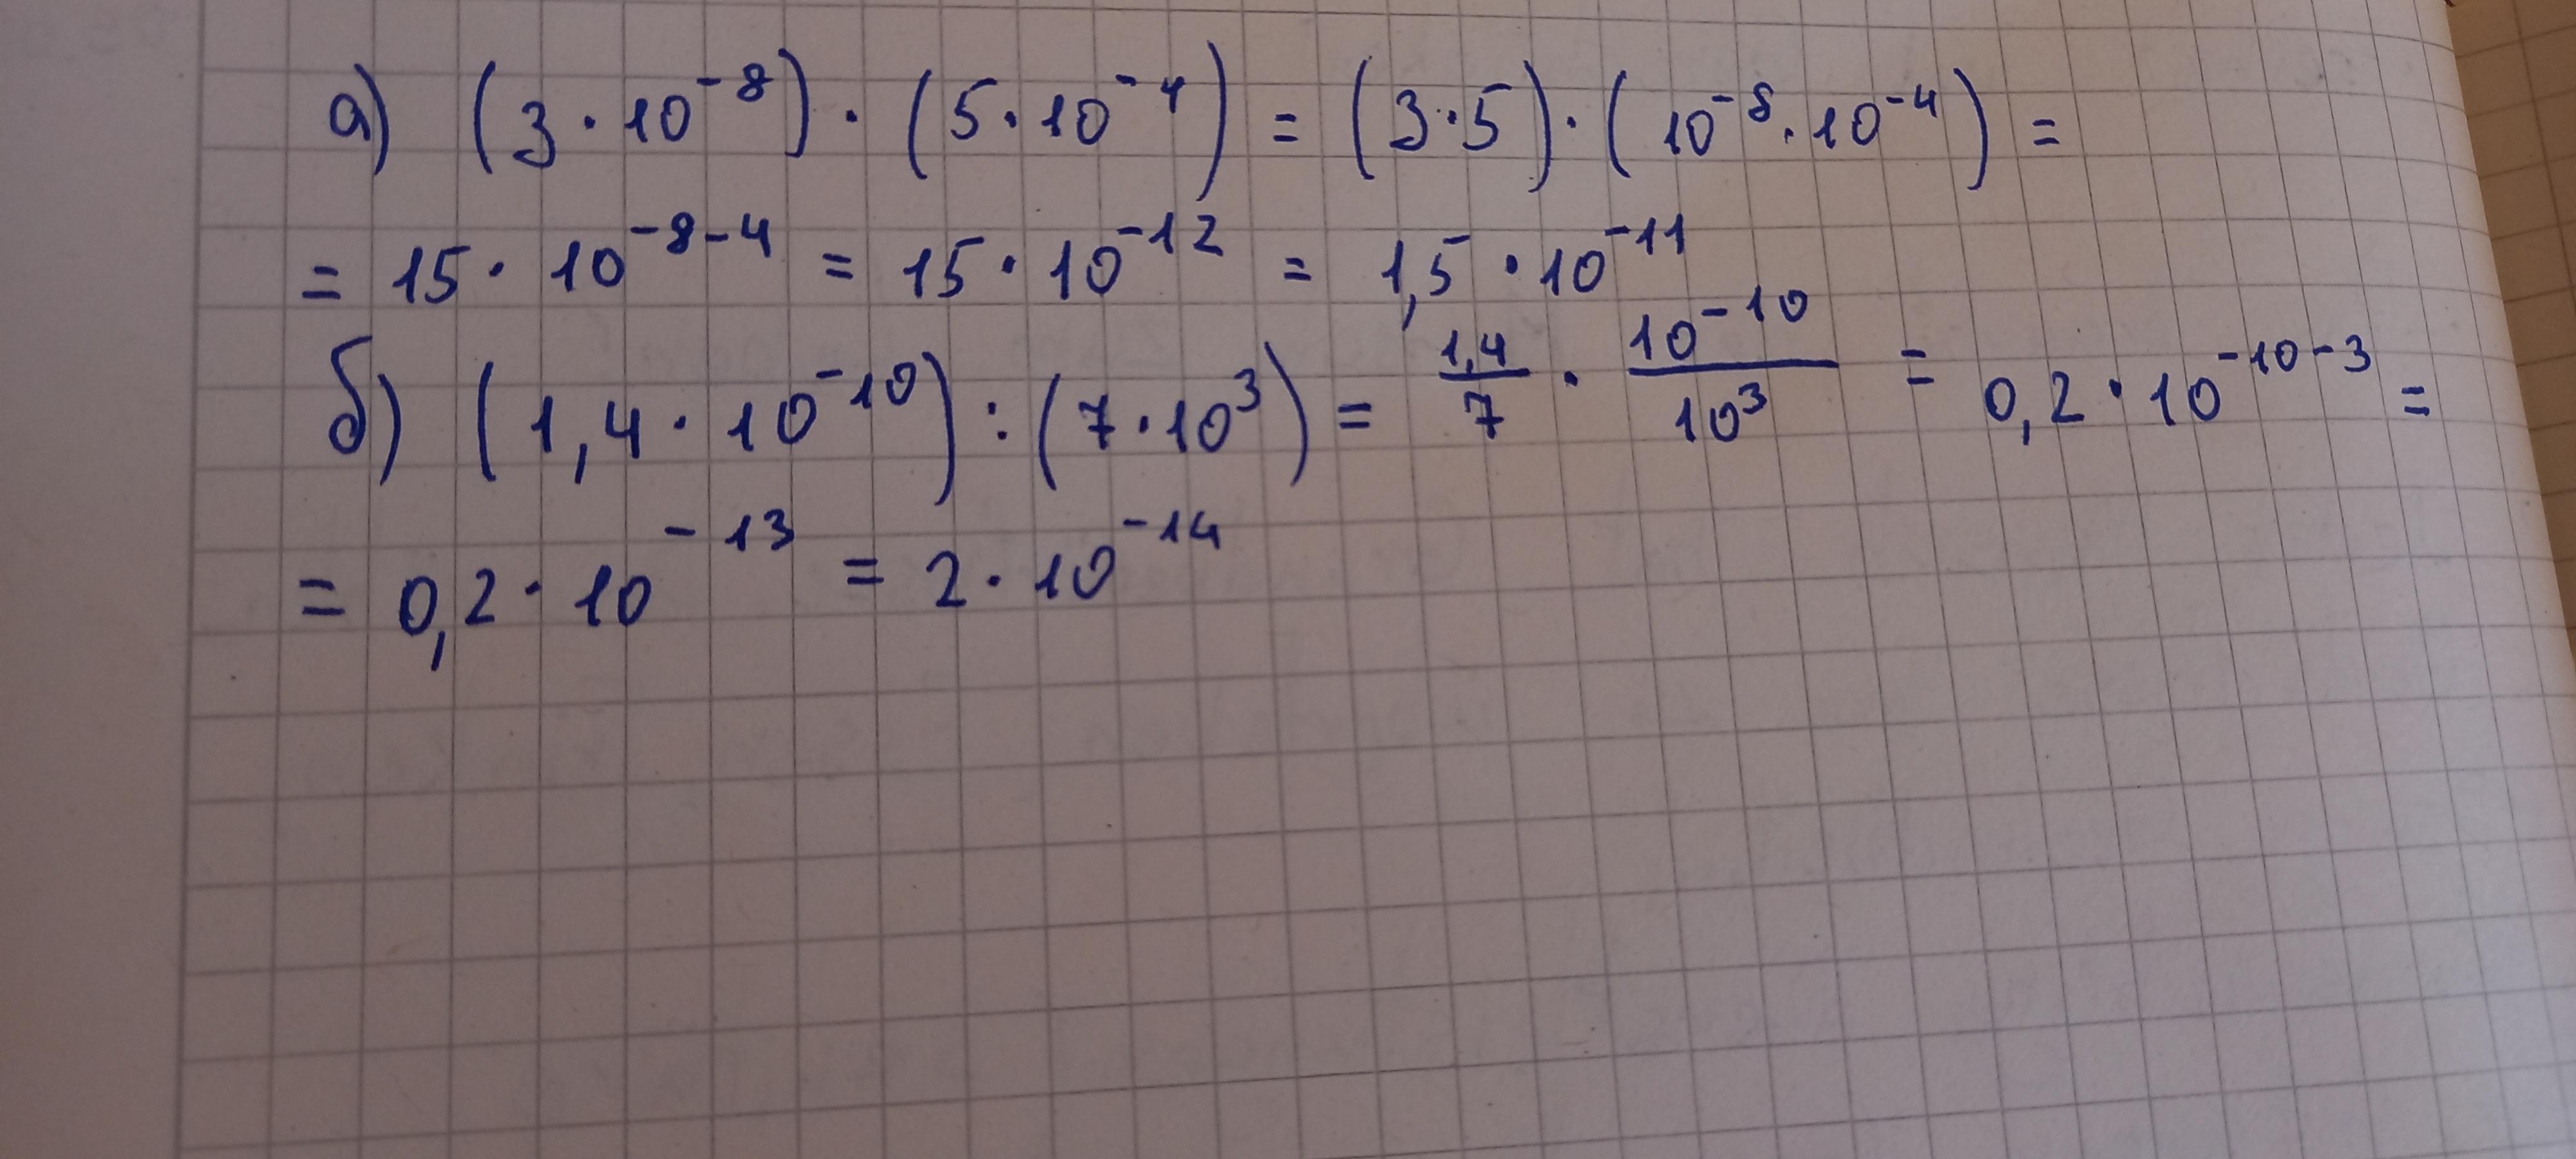 а) (3·10⁻⁸)·(5·10⁻⁴) = (3·5)·(10⁻⁸·10⁻⁴) =
= 15·10⁻⁸⁻⁴ = 15·10⁻¹² = 1,5·10⁻¹¹
б) (1,4·10⁻¹⁰):(7·10³) = 1,4/7 · 10⁻¹⁰/10³ = 0,2·10⁻¹⁰⁻³ =
= 0,2·10⁻¹³ = 2·10⁻¹⁴